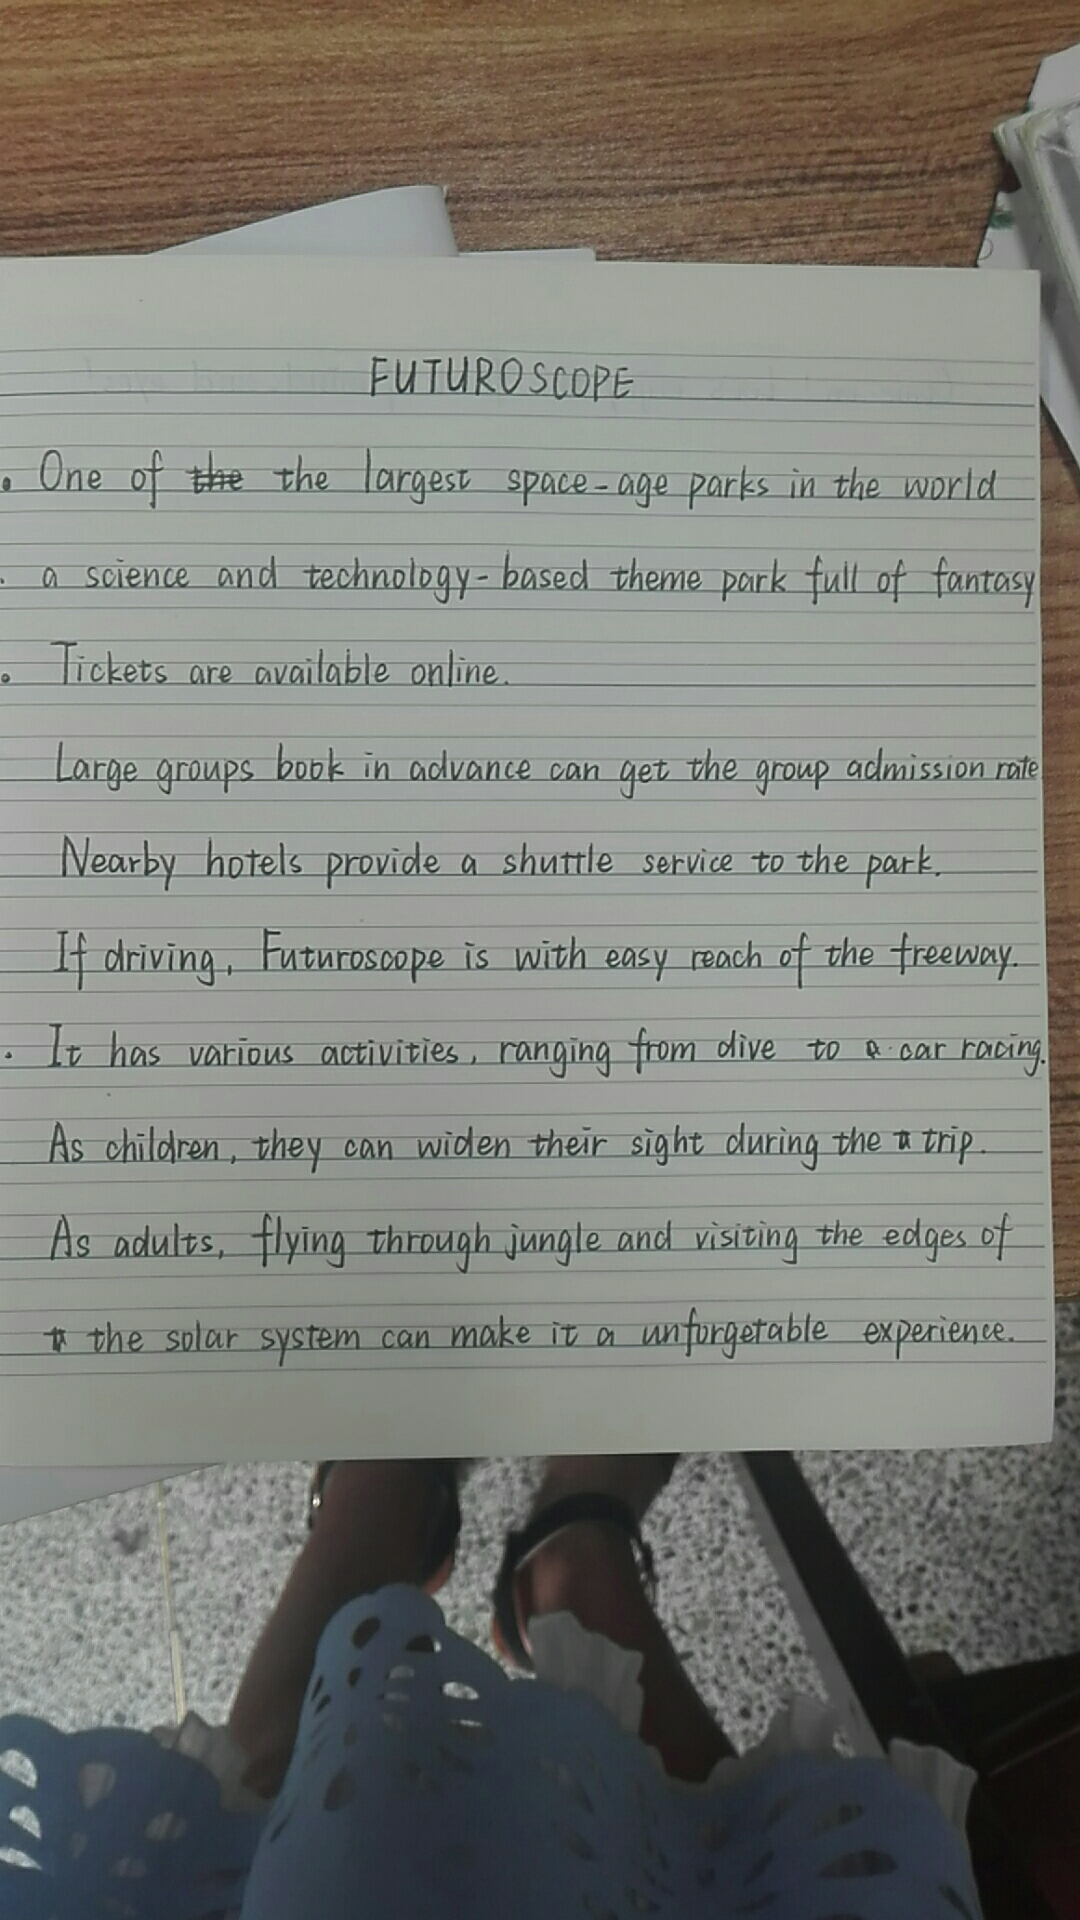 FUTUROSCOPE
. One of the the largest space-age parks in the world
. a science and technology-based theme park full of fantasy
. Tickets are available online.
Large groups book in advance can get the group admission rate
Nearby hotels provide a shuttle service to the park.
If driving, Futuroscope is with easy reach of the freeway.
. It has various activities, ranging from dive to a car racing.
As children, they can widen their sight during the trip.
As adults, flying through jungle and visiting the edges of
the solar system can make it a unforgetable experience.